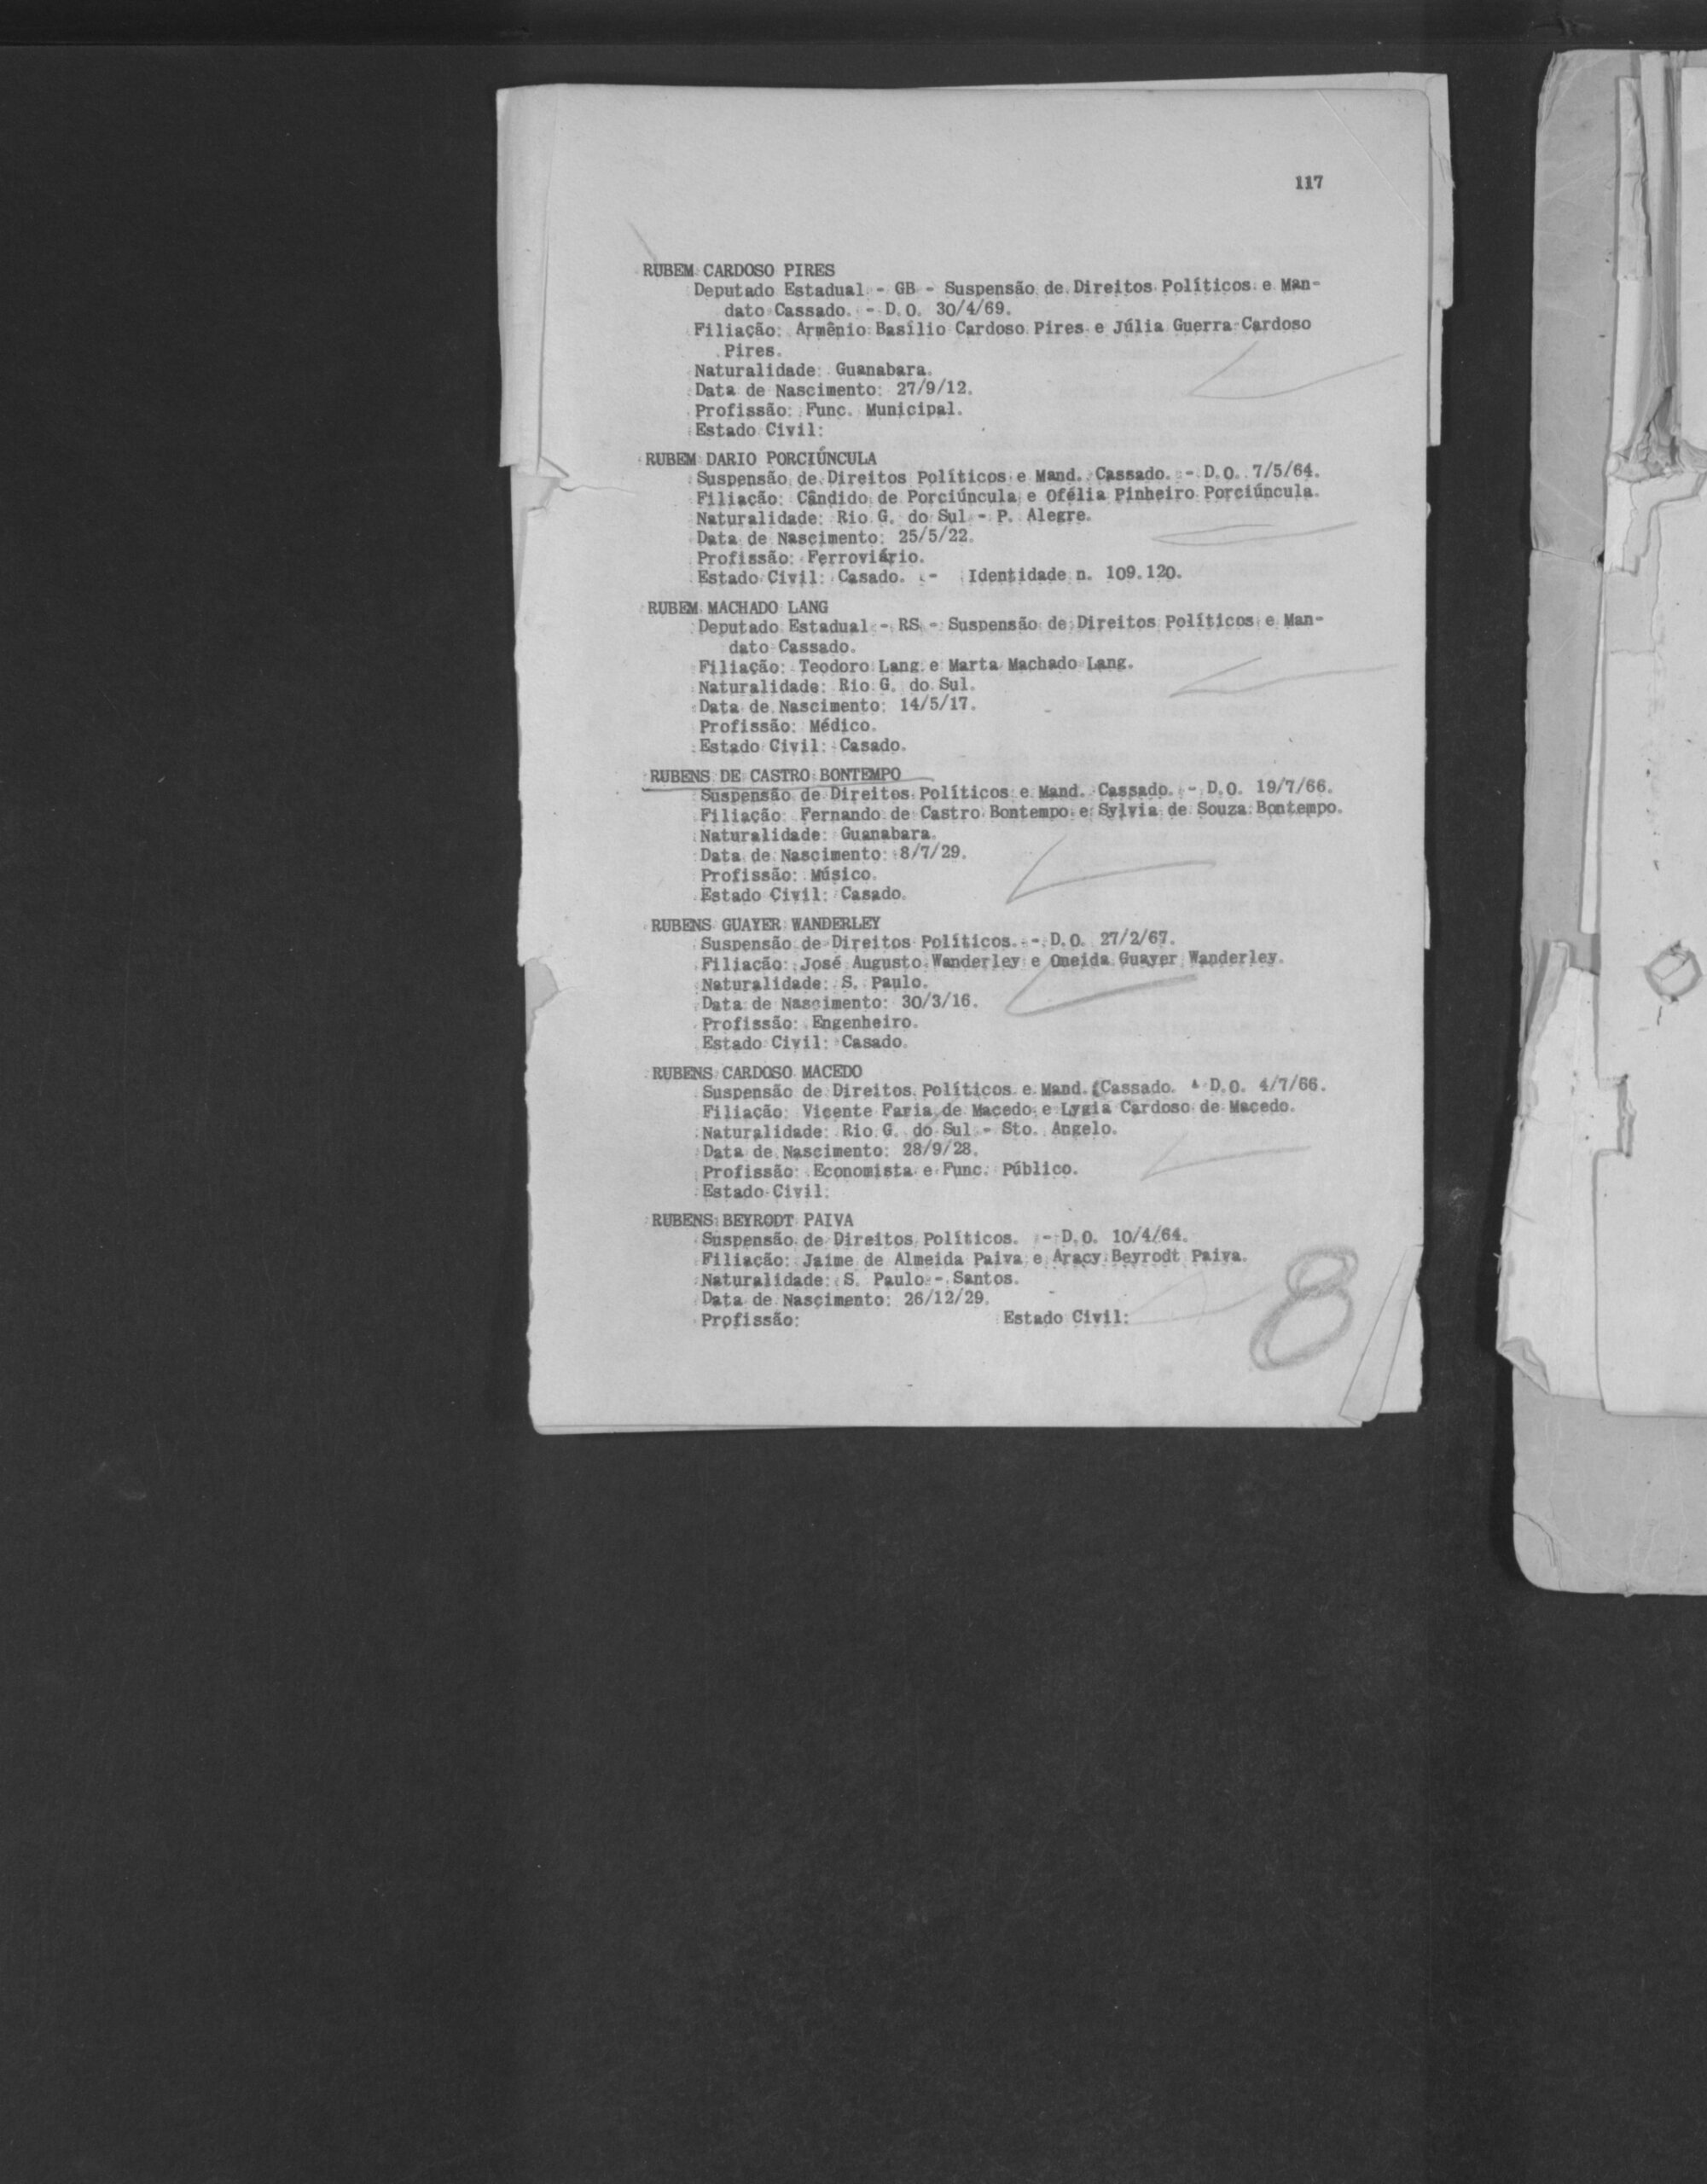 117
RUBEM CARDOSO PIRES
Deputado Estadual - GB - Suspensão de Direitos Políticos e Man-
dato Cassado. - D.O. 30/4/69.
Filiação: Armênio Basílio Cardoso Pires e Júlia Guerra Cardoso
Pires.
Naturalidade: Guanabara.
Data de Nascimento: 27/9/12.
Profissão: Func. Municipal.
Estado Civil:
RUBEM DARIO PORCIÚNCULA
Suspensão de Direitos Políticos e Mand. Cassado. - D.O. 7/5/64.
Filiação: Cândido de Porciúncula e Ofélia Pinheiro Porciúncula.
Naturalidade: Rio G. do Sul - P. Alegre.
Data de Nascimento: 25/5/22.
Profissão: Ferroviário.
Estado Civil: Casado. - Identidade n. 109.120.
RUBEM MACHADO LANG
Deputado Estadual - RS - Suspensão de Direitos Políticos e Man-
dato Cassado.
Filiação: Teodoro Lang e Marta Machado Lang.
Naturalidade: Rio G. do Sul.
Data de Nascimento: 14/5/17.
Profissão: Médico.
Estado Civil: Casado.
RUBENS DE CASTRO BONTEMPO
Suspensão de Direitos Políticos e Mand. Cassado. - D.O. 19/7/66.
Filiação: Fernando de Castro Bontempo e Sylvia de Souza Bontempo.
Naturalidade: Guanabara.
Data de Nascimento: 8/7/29.
Profissão: Músico.
Estado Civil: Casado.
RUBENS GUAYER WANDERLEY
Suspensão de Direitos Políticos. - D.O. 27/2/67.
Filiacão: José Augusto Wanderley e Oneida Guayer Wanderley.
Naturalidade: S. Paulo.
Data de Nascimento: 30/3/16.
Profissão: Engenheiro.
Estado Civil: Casado.
RUBENS CARDOSO MACEDO
Suspensão de Direitos Políticos e Mand. Cassado. - D.O. 4/7/66.
Filiação: Vicente Faria de Macedo e Lygia Cardoso de Macedo.
Naturalidade: Rio G. do Sul - Sto. Angelo.
Data de Nascimento: 28/9/28.
Profissão: Economista e Func. Público.
Estado Civil:
RUBENS BEYRODT PAIVA
Suspensão de Direitos Políticos. - D.O. 10/4/64.
Filiação: Jaime de Almeida Paiva e Aracy Beyrodt Paiva.
Naturalidade: S. Paulo - Santos.
Data de Nascimento: 26/12/29.
Profissão: Estado Civil:
8